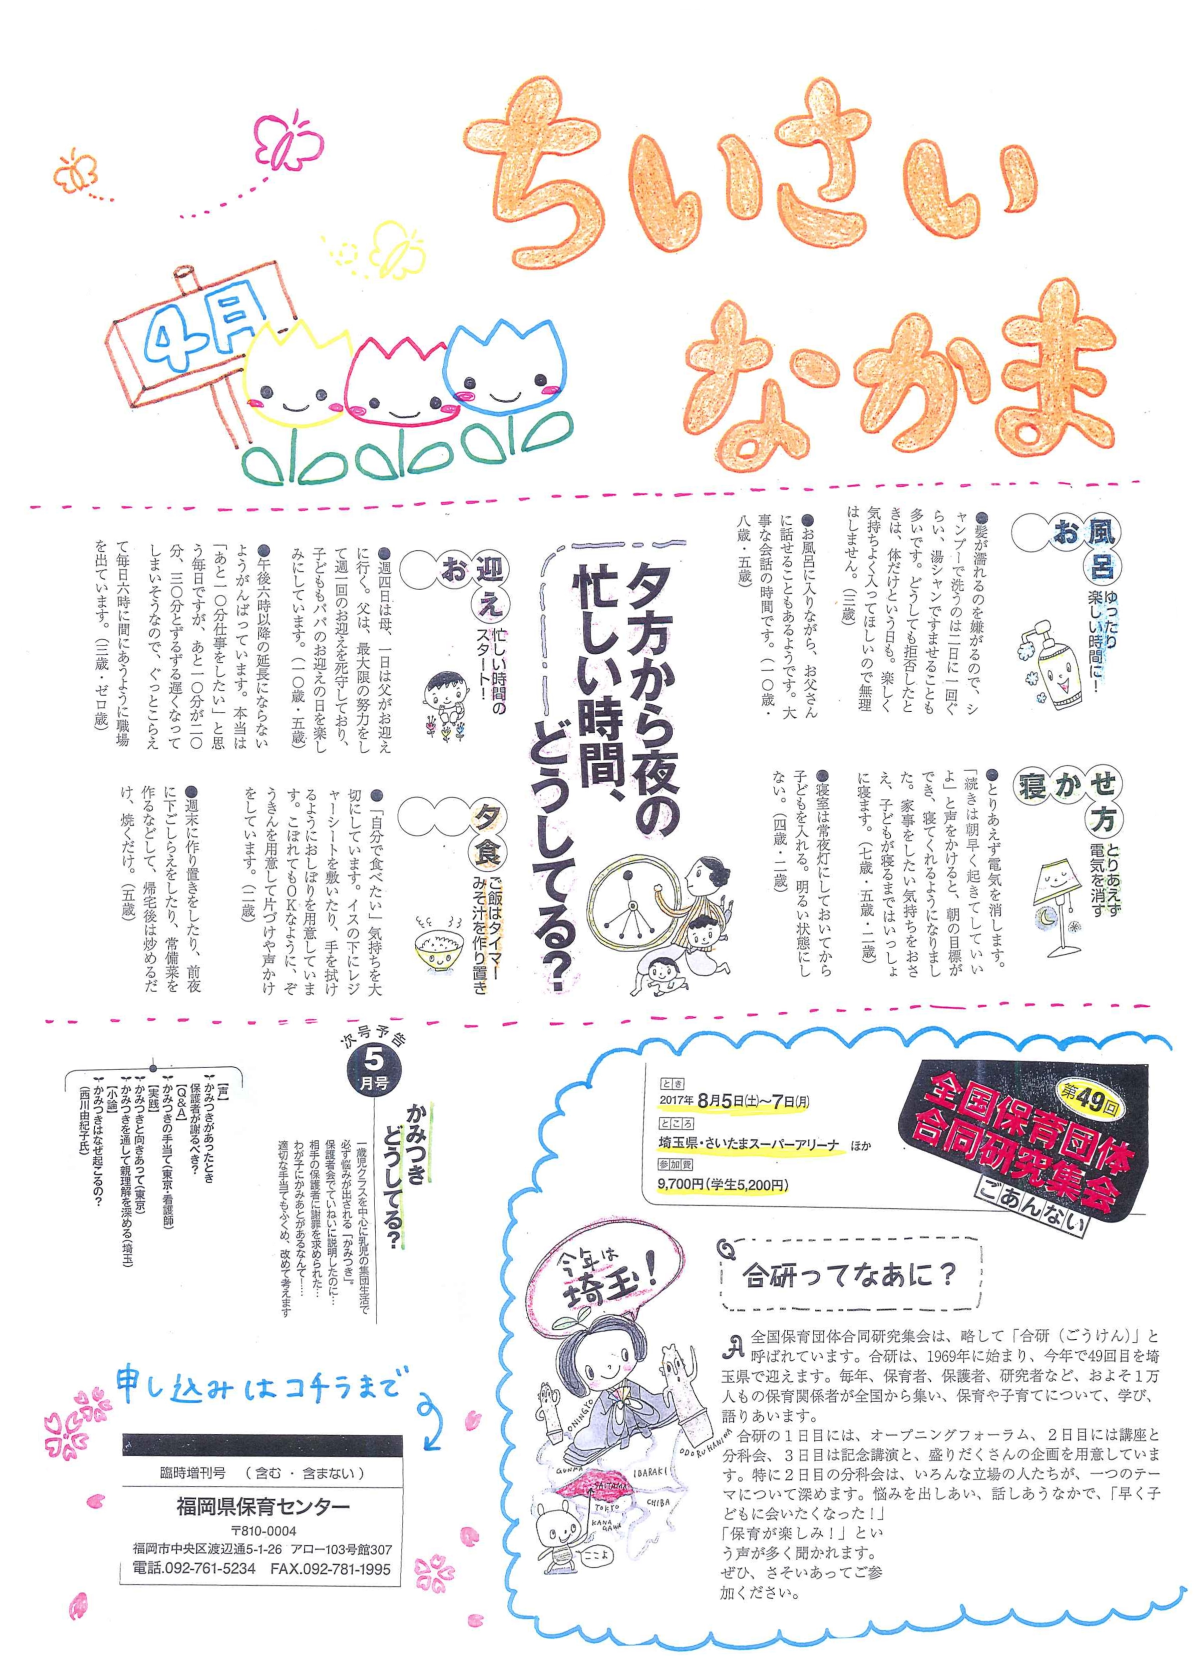 ちいさい
なかま
4月
お風呂
ゆったり
楽しい時間に！
●髪が濡れるのを嫌がるので、シ
ャンプーで洗うのは二日に一回ぐ
らい、湯シャンですませることも
多いです。どうしても拒否したと
きは、体だけという日も。楽しく
気持ちよく入ってほしいので無理
はしません。（三歳）
●お風呂に入りながら、お父さん
に話せることもあるようです。大
事な会話の時間です。（一〇歳・
八歳・五歳）
寝かせ方
とりあえず
電気を消す
●とりあえず電気を消します。
「続きは朝早く起きてしていい
よ」と声をかけると、朝の目標が
でき、寝てくれるようになりまし
た。家事をしたい気持ちをおさ
え、子どもが寝るまではいっしょ
に寝ます。（七歳・五歳・二歳）
●寝室は常夜灯にしておいてから
子どもを入れる。明るい状態にし
ない。（四歳・二歳）
夕方から夜の
忙しい時間、
どうしてる？
お迎え
忙しい時間の
スタート！
●週四日は母、一日は父がお迎え
に行く。父は、最大限の努力をし
て週一回のお迎えを死守しており、
子どももパパのお迎えの日を楽し
みにしています。（一〇歳・五歳）
●午後六時以降の延長にならない
ようがんばっています。本当は
「あと一〇分仕事をしたい」と思
う毎日ですが、あと一〇分が二〇
分、三〇分とずるずる遅くなって
しまいそうなので、ぐっとこらえ
て毎日六時に間にあうように職場
を出ています。（三歳・ゼロ歳）
夕食
ご飯はタイマー
みそ汁を作り置き
●「自分で食べたい」気持ちを大
切にしています。イスの下にレジ
ャーシートを敷いたり、手を拭け
るようにおしぼりを用意していま
す。こぼれてもOKなように、ぞ
うきんを用意して片づけや声かけ
をしています。（二歳）
●週末に作り置きをしたり、前夜
に下ごしらえをしたり、常備菜を
作るなどして、帰宅後は炒めるだ
け、焼くだけ。（五歳）
第49回
全国保育団体
合同研究集会
ごあんない
とき
2017年 8月5日(土)～7日(月)
ところ
埼玉県・さいたまスーパーアリーナ ほか
参加費
9,700円(学生5,200円)
Q
合研ってなあに？
A 全国保育団体合同研究集会は、略して「合研（ごうけん）」と
呼ばれています。合研は、1969年に始まり、今年で49回目を埼
玉県で迎えます。毎年、保育者、保護者、研究者など、およそ1万
人もの保育関係者が全国から集い、保育や子育てについて、学び、
語りあいます。
合研の1日目には、オープニングフォーラム、2日目には講座と
分科会、3日目は記念講演と、盛りだくさんの企画を用意していま
す。特に2日目の分科会は、いろんな立場の人たちが、一つのテー
マについて深めます。悩みを出しあい、話しあうなかで、「早く子
どもに会いたくなった！」
「保育が楽しみ！」とい
う声が多く聞かれます。
ぜひ、さそいあってご参
加ください。
今年は
埼玉！
ONINGYO
ODORU HANIWA
GUNMA
IBARAKI
SAITAMA
TOKYO
CHIBA
KANA
GAWA
ここよ
次号予告
5
月号
かみつき
どうしてる？
一歳児クラスを中心に乳児の集団生活で
必ず悩みが出される「かみつき」。
保護者会でていねいに説明したのに…
相手の保護者に謝罪を求められた…
わが子にかみあとがあるなんて！……
適切な手当てもふくめ、改めて考えます
【声】
かみつきがあったとき
保護者が謝るべき？
【Q&A】
かみつきの手当て（東京・看護師）
【実践】
かみつきと向きあって（東京）
かみつきを通して親理解を深める（埼玉）
【小論】
かみつきはなぜ起こるの？
（西川由紀子氏）
申し込みはコチラまで
臨時増刊号 （含む・含まない）
福岡県保育センター
〒810-0004
福岡市中央区渡辺通5-1-26 アロー103号館307
電話.092-761-5234 FAX.092-781-1995